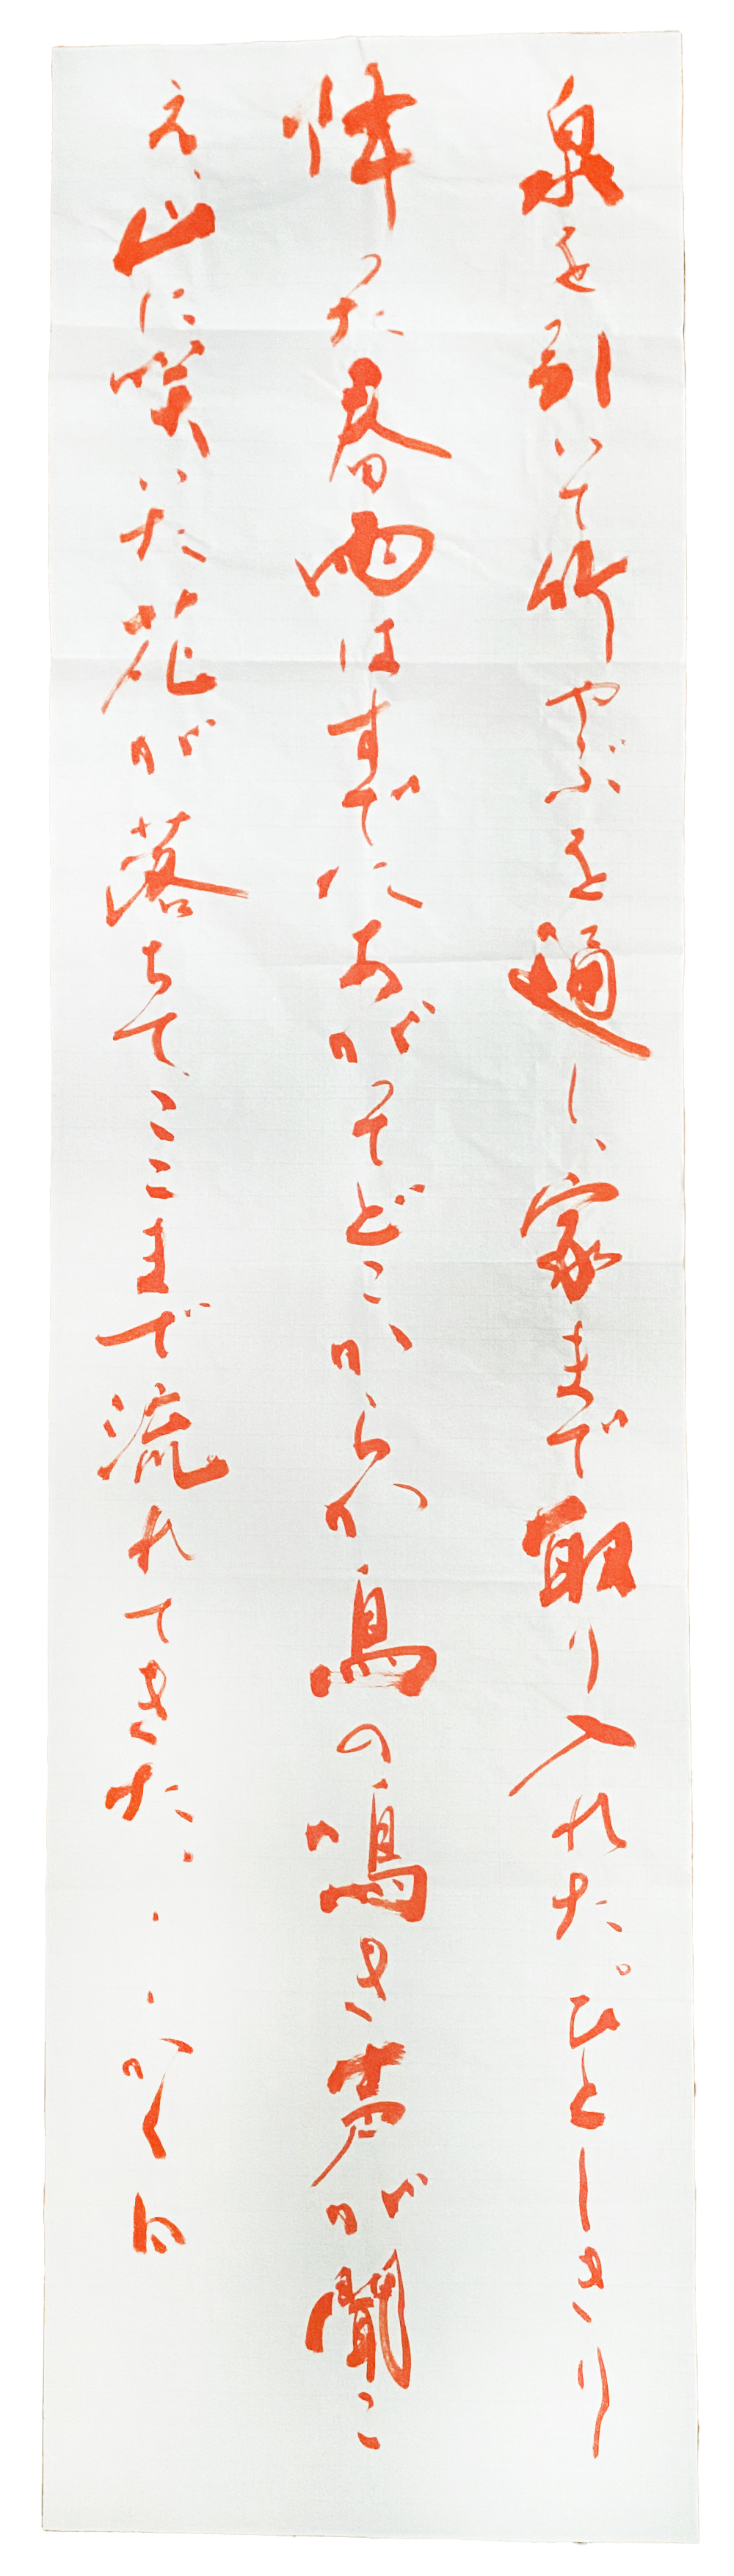 泉を引いて竹やぶを通し、家まで取り入れた。ひとしきり
降った春雨はすでにあがってどこからか鳥の鳴き声が聞こ
え、山に咲いた花が落ちて、ここまで流れてきた・・・かく